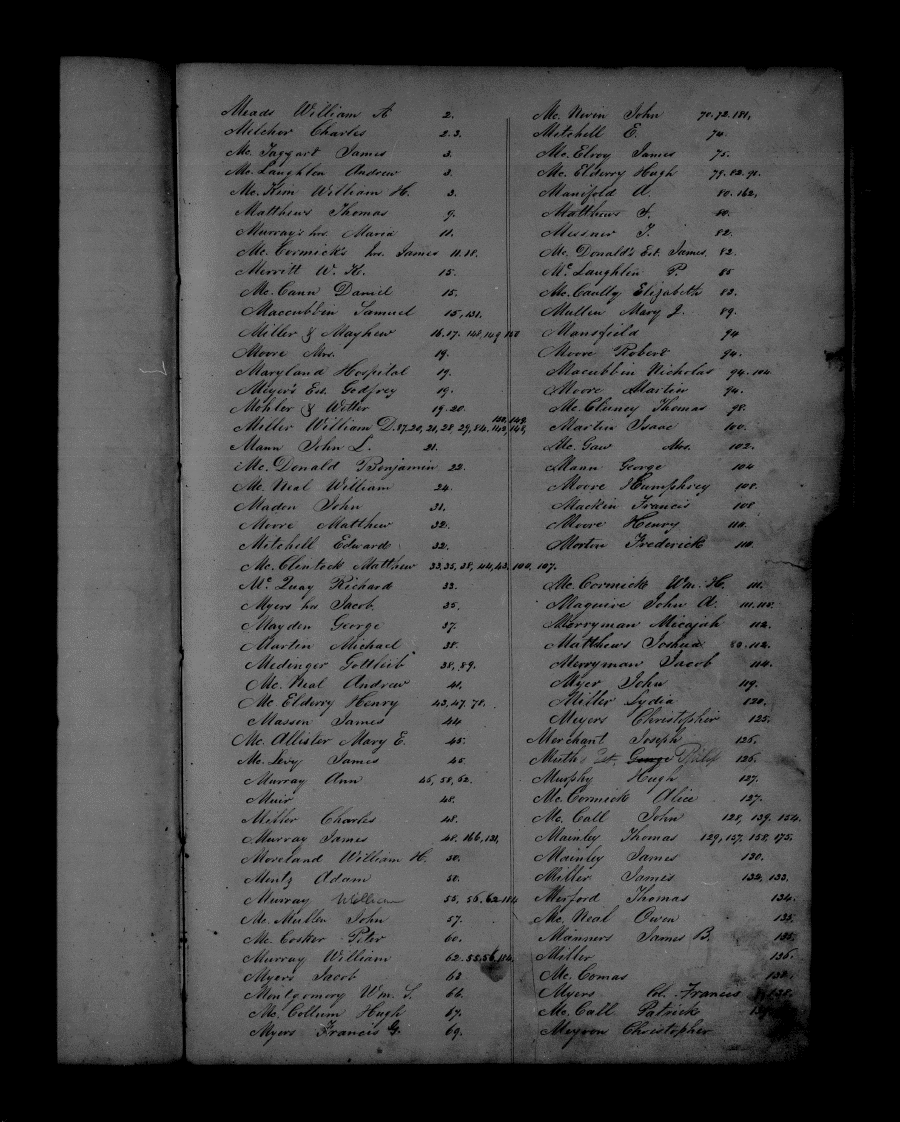 Meads William A 2.
Melcher Charles 2.3.
Mc. Taggart James 3.
Mc. Laughlin Andrew 3.
Mc. Kim William H. 3.
Matthews Thomas 9.
Murray's hrs. Maria 11.
Mc. Cormick's hrs. James 11.18.
Merritt W. H. 15.
Mc. Cann Daniel 15.
Maccubbin Samuel 15, 131.
Miller & Mayhew 16.17. 148, 149
Moore Mrs. 19.
Maryland Hospital 19.
Meyer's Est. Godfrey 19.
Mohler & Witter 19.20.
Miller William D. 20, 21, 28, 29, 84.
Mann John L. 21.
Mc. Donald Benjamin 22.
Mc. Neal William 24.
Maden John 31.
Moore Matthew 32.
Mitchell Edward 32.
Mc. Clintock Matthew 33, 35, 38, 44, 43, 100, 107.
Mc. Quay Richard 33.
Myers hrs Jacob 35.
Mayden George 37.
Martin Michael 38.
Medinger Gottlieb 38, 89.
Mc. Neal Andrew 41.
Mc Elderry Henry 43, 47, 78.
Masson James 44
Mc. Allister Mary E. 45.
Mc. Levy James 45
Murray Ann 45, 58, 62.
Muir 48.
Miller Charles 48.
Murray James 48. 166, 131,
Moreland William H. 50.
Mentz Adam 50.
Murray William 55, 56. 62. 114
Mc. Mullen John 57.
Mc. Cosker Peter 60.
Murray William 62. 55. 56, 114.
Myers Jacob 63
Montgomery Wm. S. 66.
Mc. Collum Hugh 67.
Myers Francis G. 69.
Mc. Nevin John 70.72.181,
Mitchell E. 74.
Mc. Elroy James 75.
Mc. Elderry Hugh 79. 82. 91.
Manifold A. 80. 162,
Matthews S. 80.
Messner J. 82.
Mc. Donald's Est. James. 82.
Mc. Laughlin P. 85
Mc. Caully Elizabeth 83.
Mullen Mary J. 89.
Mansfield 94
Moore Robert 94.
Macubbin Nicholas 94. 104
Moore Martin 94.
Mc. Cluney Thomas 98.
Martin Isaac 100.
Mc. Gaw Mrs. 102.
Mann George 104
Moore Humphrey 108.
Mackin Francis 108
Moore Henry 110.
Morton Frederick 110.
Mc. Cormick Wm. H. 111.
Maguire John A. 111.
Merryman Micajah 112.
Matthews Joshua 80. 112.
Merryman Jacob 114.
Myer John 119.
Miller Lydia 120.
Meyers Christopher 125.
Merchant Joseph 125.
Muth Est. George Philip 126.
Murphy Hugh 127.
Mc. Cormick Alice 127.
Mc. Call John 128, 139. 154.
Mainley Thomas 129, 157. 158, 175.
Mainley James 130.
Miller James 132, 133.
Mexford Thomas 134.
Mc. Neal Owen 135.
Manners James B. 135.
Miller 136.
Mc. Comas 138.
Myers Col. Francis 138.
Mc. Call Patrick
Meyron Christopher